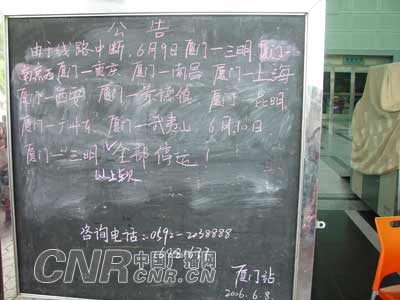 公告
由于线路中断,6月9日厦门—三明 厦门—
南京西 厦门—重庆 厦门—南昌 厦门—上海
厦门—西安 厦门—景德镇 厦门—昆明
厦门—广州东 厦门—武夷山 6月10日
厦门—三明 全部停运!
以上车次
咨询电话:0592-2038888
CNR 中国广播网
CNR.CN
厦门站
2006.6.8.